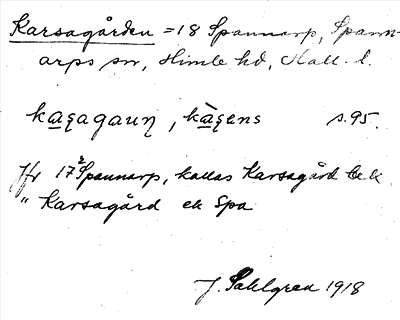 Karsagården = 18 Spannarp, Spann-
arps sn, Himle hd, Hall. l.
kaʂagaun, kàʂens s. 95.
Jfr 17² Spannarp, kallas Karsagård
" Karsagård ek Spa
J. Sahlgren 1918